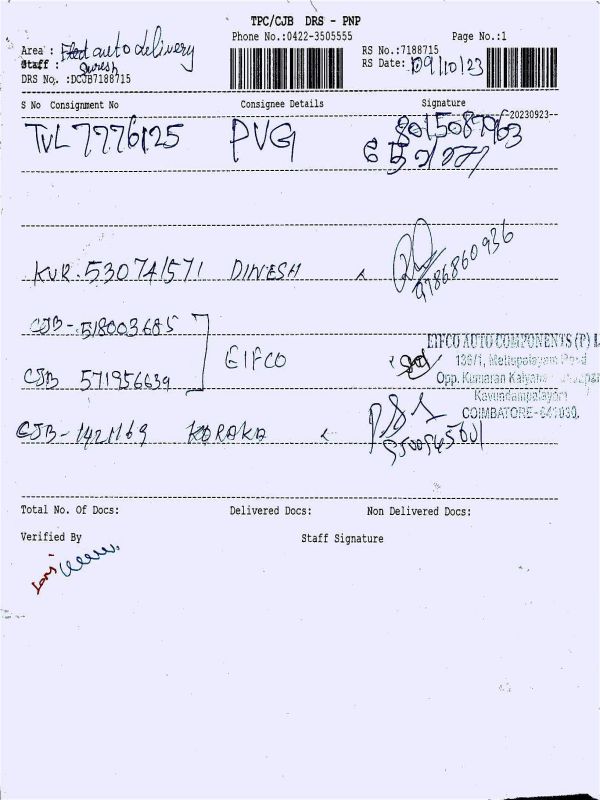 TPC/CJB DRS - PNP
Phone No.:0422-3505555 Page No.:1
Area : Fled auto delivery RS No.:7188715
Staff : Suresh RS Date: 09/10/23
DRS No. :DCJB7188715
S No Consignment No Consignee Details Signature
20230923--
TVL 7776125 PVG 8015087963
KUR. 530741571 DINESH 9786860936
CJB-518003685
CJB 571956639 EIFCO
EIFCO AUTO COMPONENTS (P) L
136/1, Mettupalayam Road
Opp. Kumaran Kalyana
Kavundampalayam
COIMBATORE-641030.
CJB-1421169 KORAKA
Total No. Of Docs: Delivered Docs: Non Delivered Docs:
Verified By Staff Signature